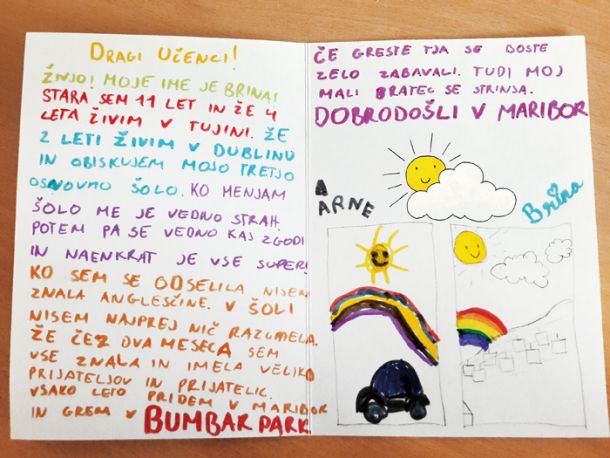 DRAGI UČENCI!
ŽIVJO! MOJE IME JE BRINA!
STARA SEM 11 LET IN ŽE 4
LETA ŽIVIM V TUJINI. ŽE
2 LETI ŽIVIM V DUBLINU
IN OBISKUJEM MOJO TRETJO
OSNOVNO ŠOLO. KO MENJAM
ŠOLO ME JE VEDNO STRAH.
POTEM PA SE VEDNO KAJ ZGODI
IN NAENKRAT JE VSE SUPER!
KO SEM SE ODSELILA NISEM
ZNALA ANGLEŠČINE. V ŠOLI
NISEM NAJPREJ NIČ RAZUMELA.
ŽE ČEZ DVA MESECA SEM
VSE ZNALA IN IMELA VELIKO
PRIJATELJOV IN PRIJATELIC.
VSAKO LETO PRIDEM V MARIBOR
IN GREM V BUMBAR PARK.
ČE GRESTE TJA SE BOSTE
ZELO ZABAVALI. TUDI MOJ
MALI BRATEC SE STRINJA.
DOBRODOŠLI V MARIBOR
A
ARNE
Brina